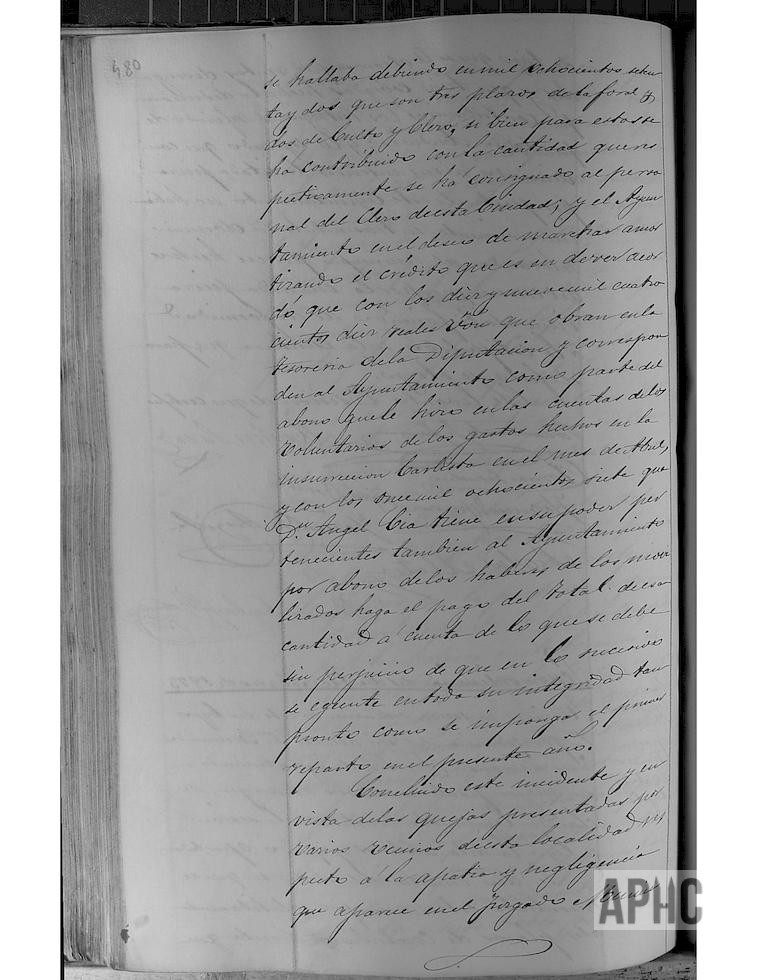 480
se hallaba debiendo en mil ochocientos seten
ta y dos que son tres plazos de la foral y
dos de Culto y Clero, si bien para estos se
ha contribuido con la cantidad que res
pectivamente se ha consignado al perso
nal del Clero de esta Ciudad; y el Ayun
tamiento en el deseo de marchar amor
tizando el crédito que es en dever acor
dó que con los diez y nueve mil cuatro
cientos diez reales Von que obran en la
tesoreria de la Diputacion y correspon
den al Ayuntamiento como parte del
abono que le hizo en las cuentas de los
voluntarios de los gastos hechos en la
insurreccion Carlista en el mes de Abril,
y con los once mil ochocientos siete que
Dn Angel Cia tiene en su poder per
tenecientes tambien al Ayuntamiento
por abono de los haberes de los movi
lizados haga el pago del total de esa
cantidad á cuenta de lo que se debe
sin perjuicio de que en lo sucesivo
se egecute en toda su integridad tan
pronto como se imponga el primer
reparto en el presente año.
Concluido este incidente y en
vista de las quejas presentadas por
varios vecinos de esta localidad res
pecto a la apatia y negligencia
que aparece en el Juzgado Munici
APHC